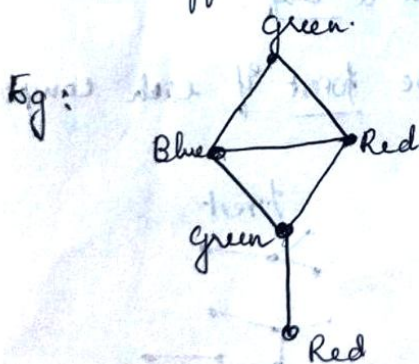 green.
Eg:
Blue
Red
green
Red